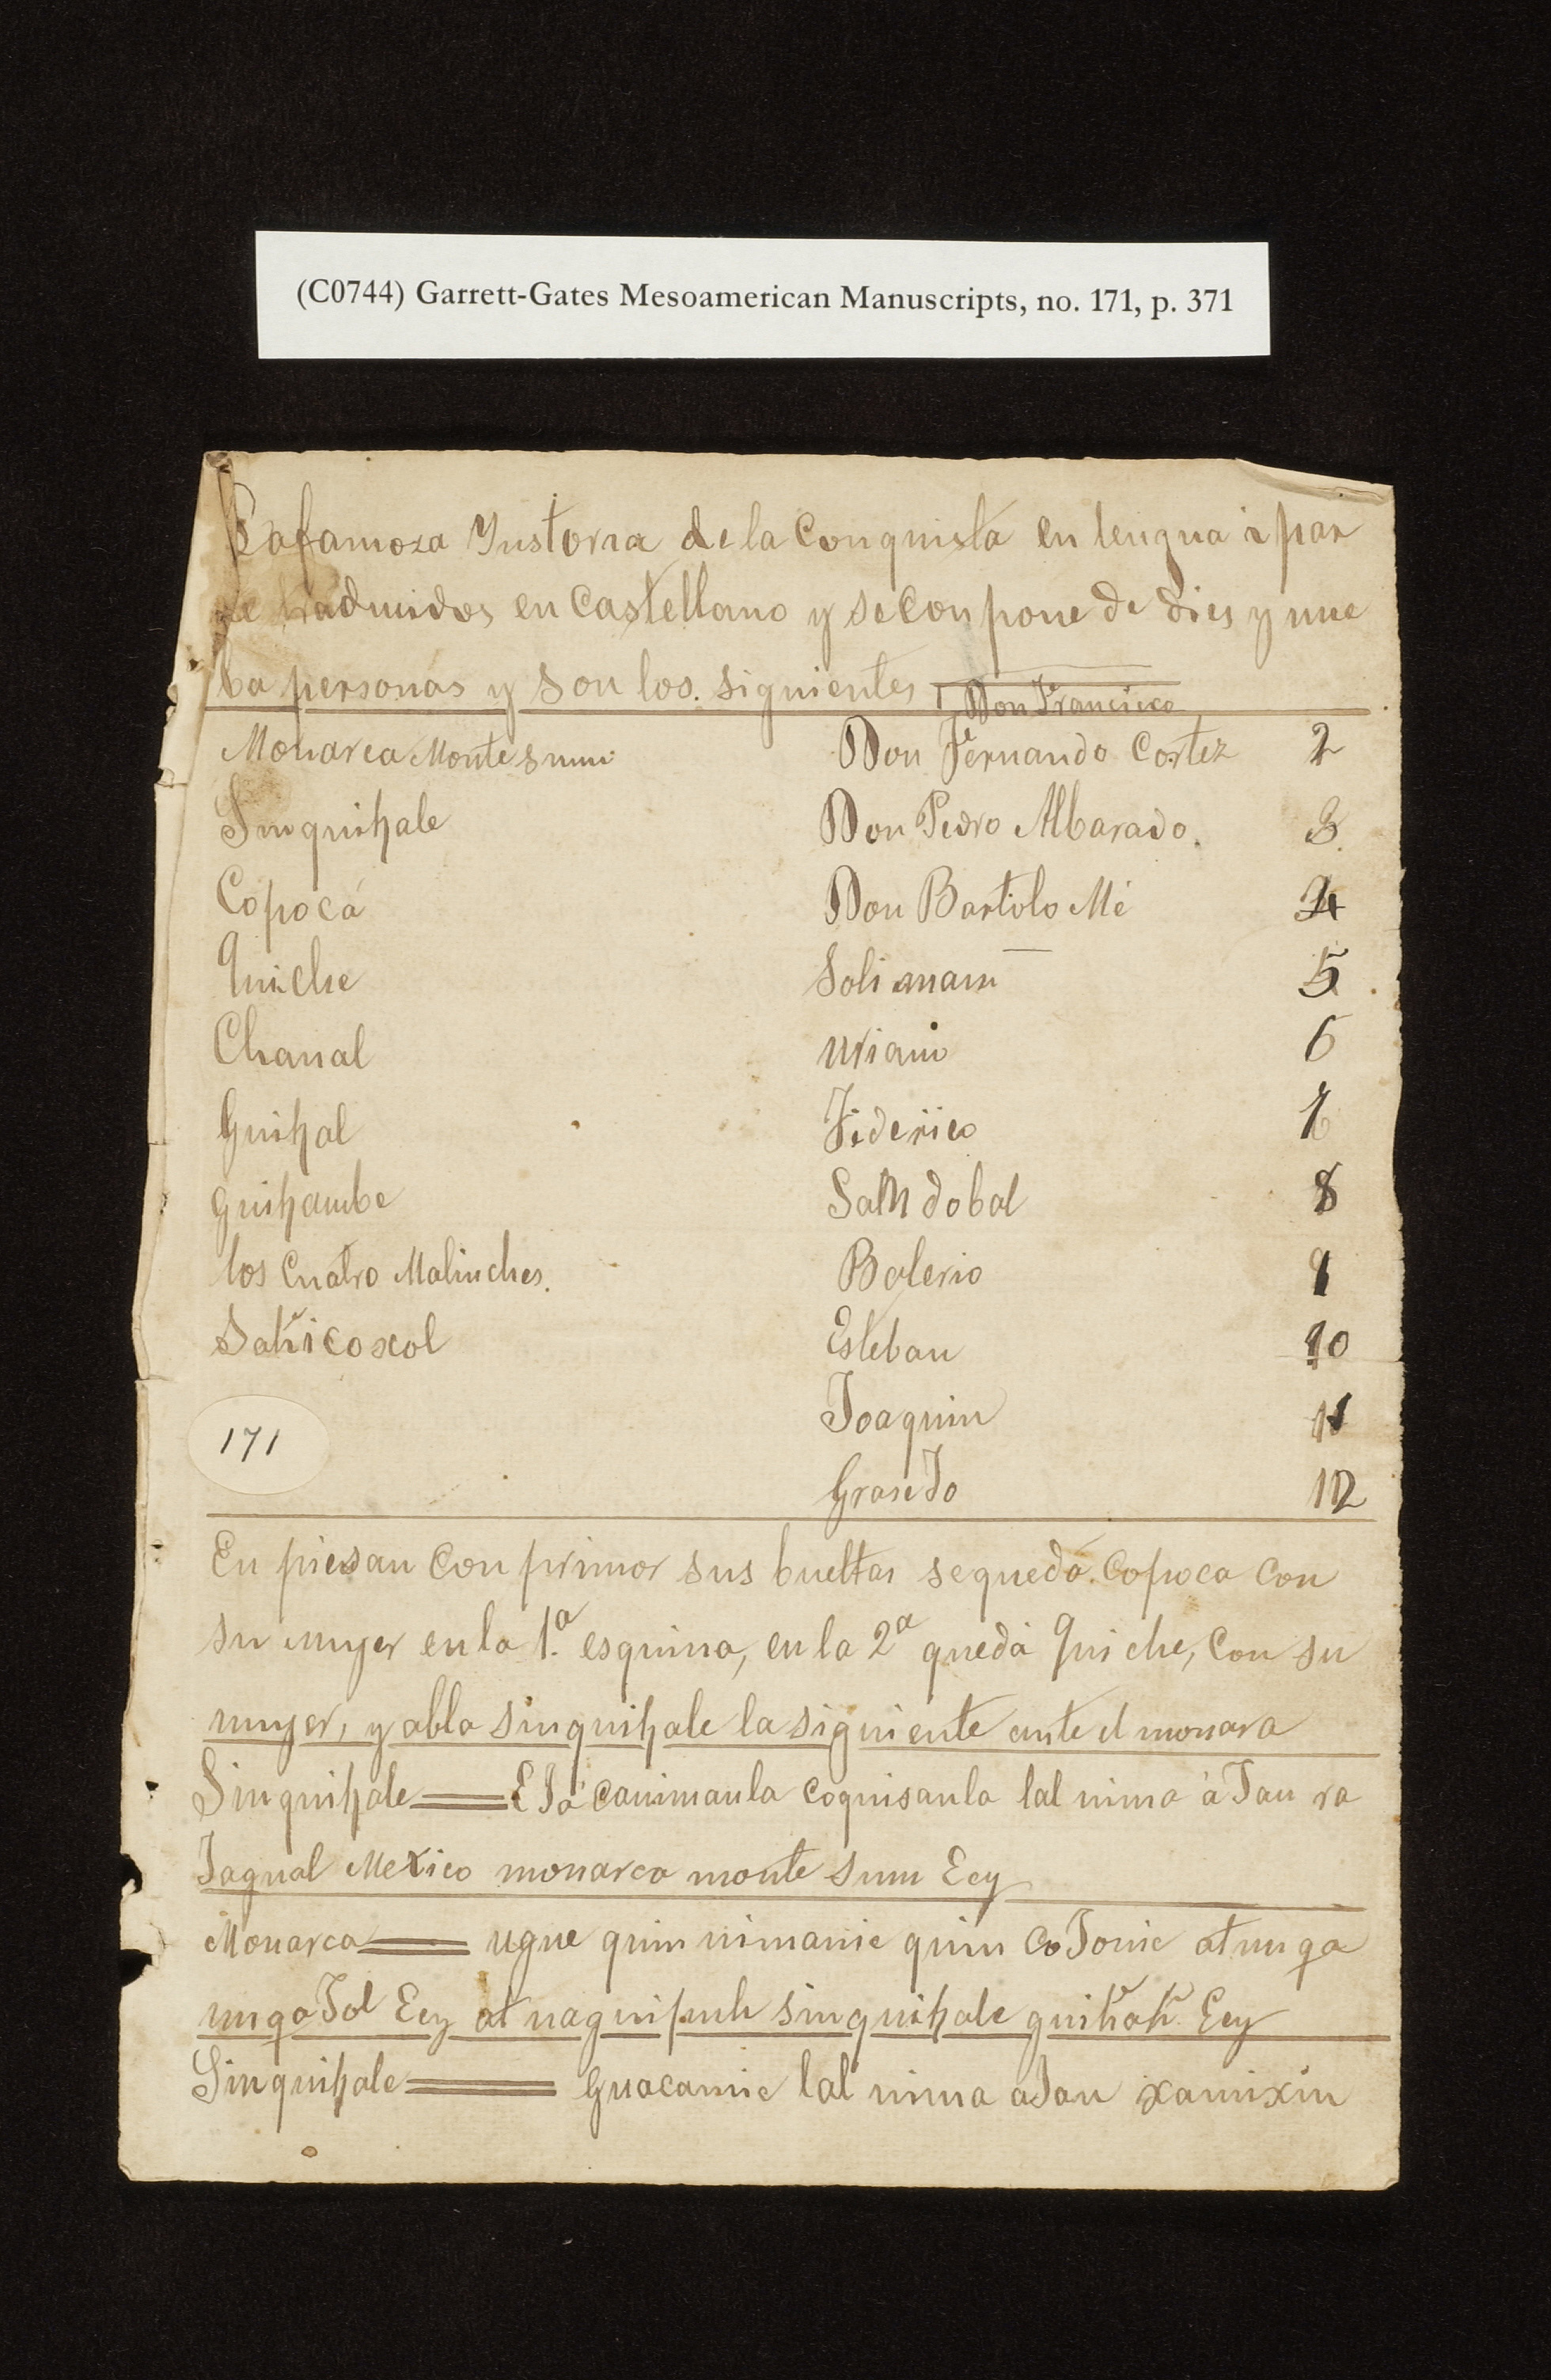 (C0744) Garrett-Gates Mesoamerican Manuscripts, no. 171, p. 371
Lafamoza Ynstoria de la Conquista en lengua i par
te traducidos en Castellano y se conpone de dies y nue
ba personas y son los. siguientes
Don Francisco
Monarca Montesumu Don Fernando Cortez 2
Sinquihale Don Pedro Albarado. 3
Copocá Don Bartolo Mé 4
Quiche Soli mam 5
Chanal Uriano 6
Guihal Federico 7
Guihambe Salndobal 8
los Cuatro Malinches. Balerio 9
Sahicoxol Esteban 10
Joaquin 11
171
GraseJo 12
En piesan Con primor sus bueltas sequedá. Copoca Con
su mujer en la 1.a esquina, en la 2a quedá Quiche, Con su
mujer, y abla sinquihale la siguiente ante el monara
Sinquihale == EJa canimanla coquisanla lal nima á Jau ra
Jagual Mexico monarca monte sum Ecy
Monarca == ugue quin nimanic quin CoJonic at nu qa
nuqaJol Ecy at naguipuh sinquihale guihah Ecy
Sinquihale == Guacamic lal nima aJau xamixin